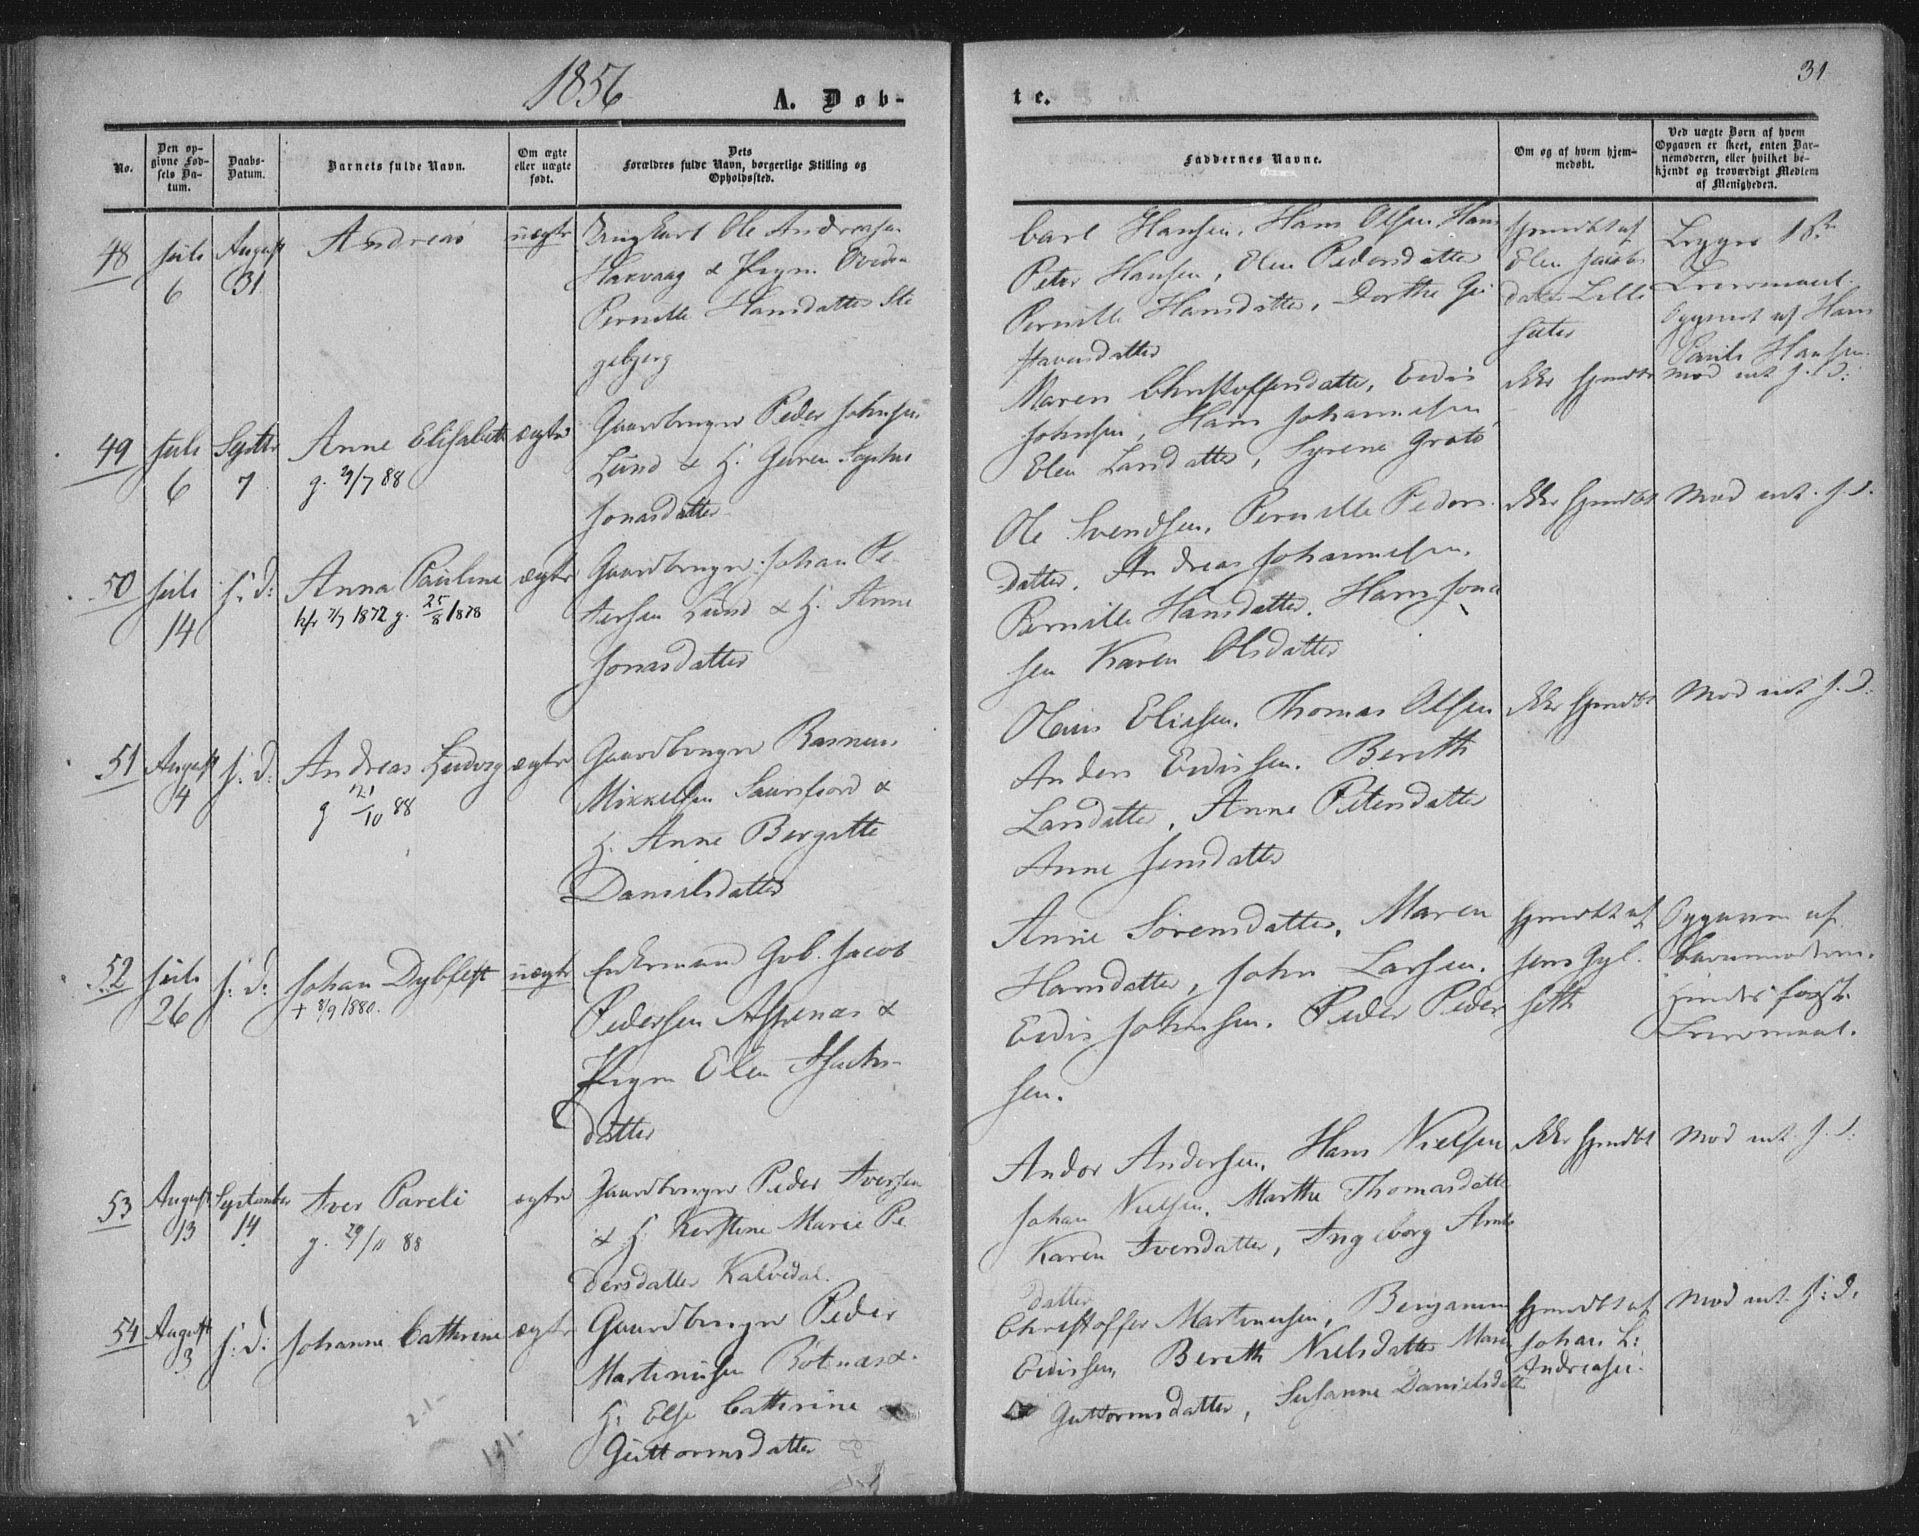 1856
A. Døb-
te.
31
No.
Den op-
givne Fød-
sels Da-
tum.
Daabs-
Datum.
Barnets fulde Navn.
Om ægte
eller uægte
født.
Dets
Forældres fulde Navn, borgerlige Stilling og
Opholdssted.
Faddernes Navne.
Om og af hvem hjem-
medøbt.
Ved uægte Børn af hvem
Opgaven er skeet, enten Bar-
nemoderen, eller hvilket be-
kjendt og troværdigt Medlem
af Menigheden.
48
Juli
6
August
31
Andreas
uægte
Ungkarl Ole Andreasen
& Pigen
Pernille Hansdatter Ste
gebjerg
Carl Hansen, Hans Olsen, Hans
Peter Hansen, Elen Pedersdatter
Pernille Hansdatter, Dorthe Gu
stavsdatter
hjemdøbt af
Elen Jacobs
datter Lille
Leiermaal.
af Hans
Hansen
49
Juli
6
Septbr
7
Anne Elisabeth
g. 29/7 88
ægte
Gaardbruger Peder Johnsen
Lund & H. Guren Sophie
Jonasdatter
Maren Christoffersdatter, Evdis
Johnsen, Hans Johannesen
Elen Larsdatter, Syrene Grøtø
ikke hjemdøbt
med int. J. d:
50
Juli
14
j. d:
Anna Pauline
1872 g. 25/8 1878
ægte
Gaardbruger Johan Pe
tersen Lund & H. Anne
Jonasdatter
Ole Svendsen, Pernille Peders
datter, Andreas Johannesen,
Pernille Hansdatter, Hans Jona
sen Karen Olsdatter
ikke hjemdøbt
Med int. J. d.
51
August
4
j. d:
Andreas Ludvig
g 21/10 88
ægte
Gaardbruger Rasmus
Mikkelsen Saursfjord &
H. Anne Bergitte
Danielsdatter
Eliasen, Thomas Olsen
Anders Evdissen, Bereth
Larsdatter, Anne Petersdatter
Anne Jensdatter
ikke hjemdøbt
Med int. J. d:
52
Juli
26
j. d:
Johan Dybfest
+ 8/9 1880.
uægte
Enkemand Gbr. Jacob
Pedersen Aspenæs &
Pigen Elen Isachs-
datter
Anne Sørensdatter, Maren
Hansdatter, John Larsen,
Evdis Johnsen, Peder Peder
sen.
hjemdøbt af
Jens Gyl.
seth
Opgaven af
Barnemoderen.
Hendes første
Leiermaal.
53
August
13
September
14
Iver Pareli
g. 29/11 88
ægte
Gaardbruger Peder Iversen
& H. Kerstine Marie Pe
dersdatter Kalvedal.
Andor Andersen, Hans Nielsen
Johan Nielsen, Marthe Thomasdatter
Karen Iversdatter, Ingeborg Arnts
datter
ikke hjemdøbt
Med int. J. d:
54
August
3
j. d:
Johanne Cathrine
ægte
Gaardbruger Peder
Martinusen Botnæs &
H. Else Cathrine
Guttormsdatter
Christoffer Martinusen, Benjamin
Evdissen, Bereth Nielsdatter Maren
Guttormsdatter, Susanne Danielsdatter
hjemdøbt af
Johan L:
Andreasen.
Med int. J. d.
21-
191-